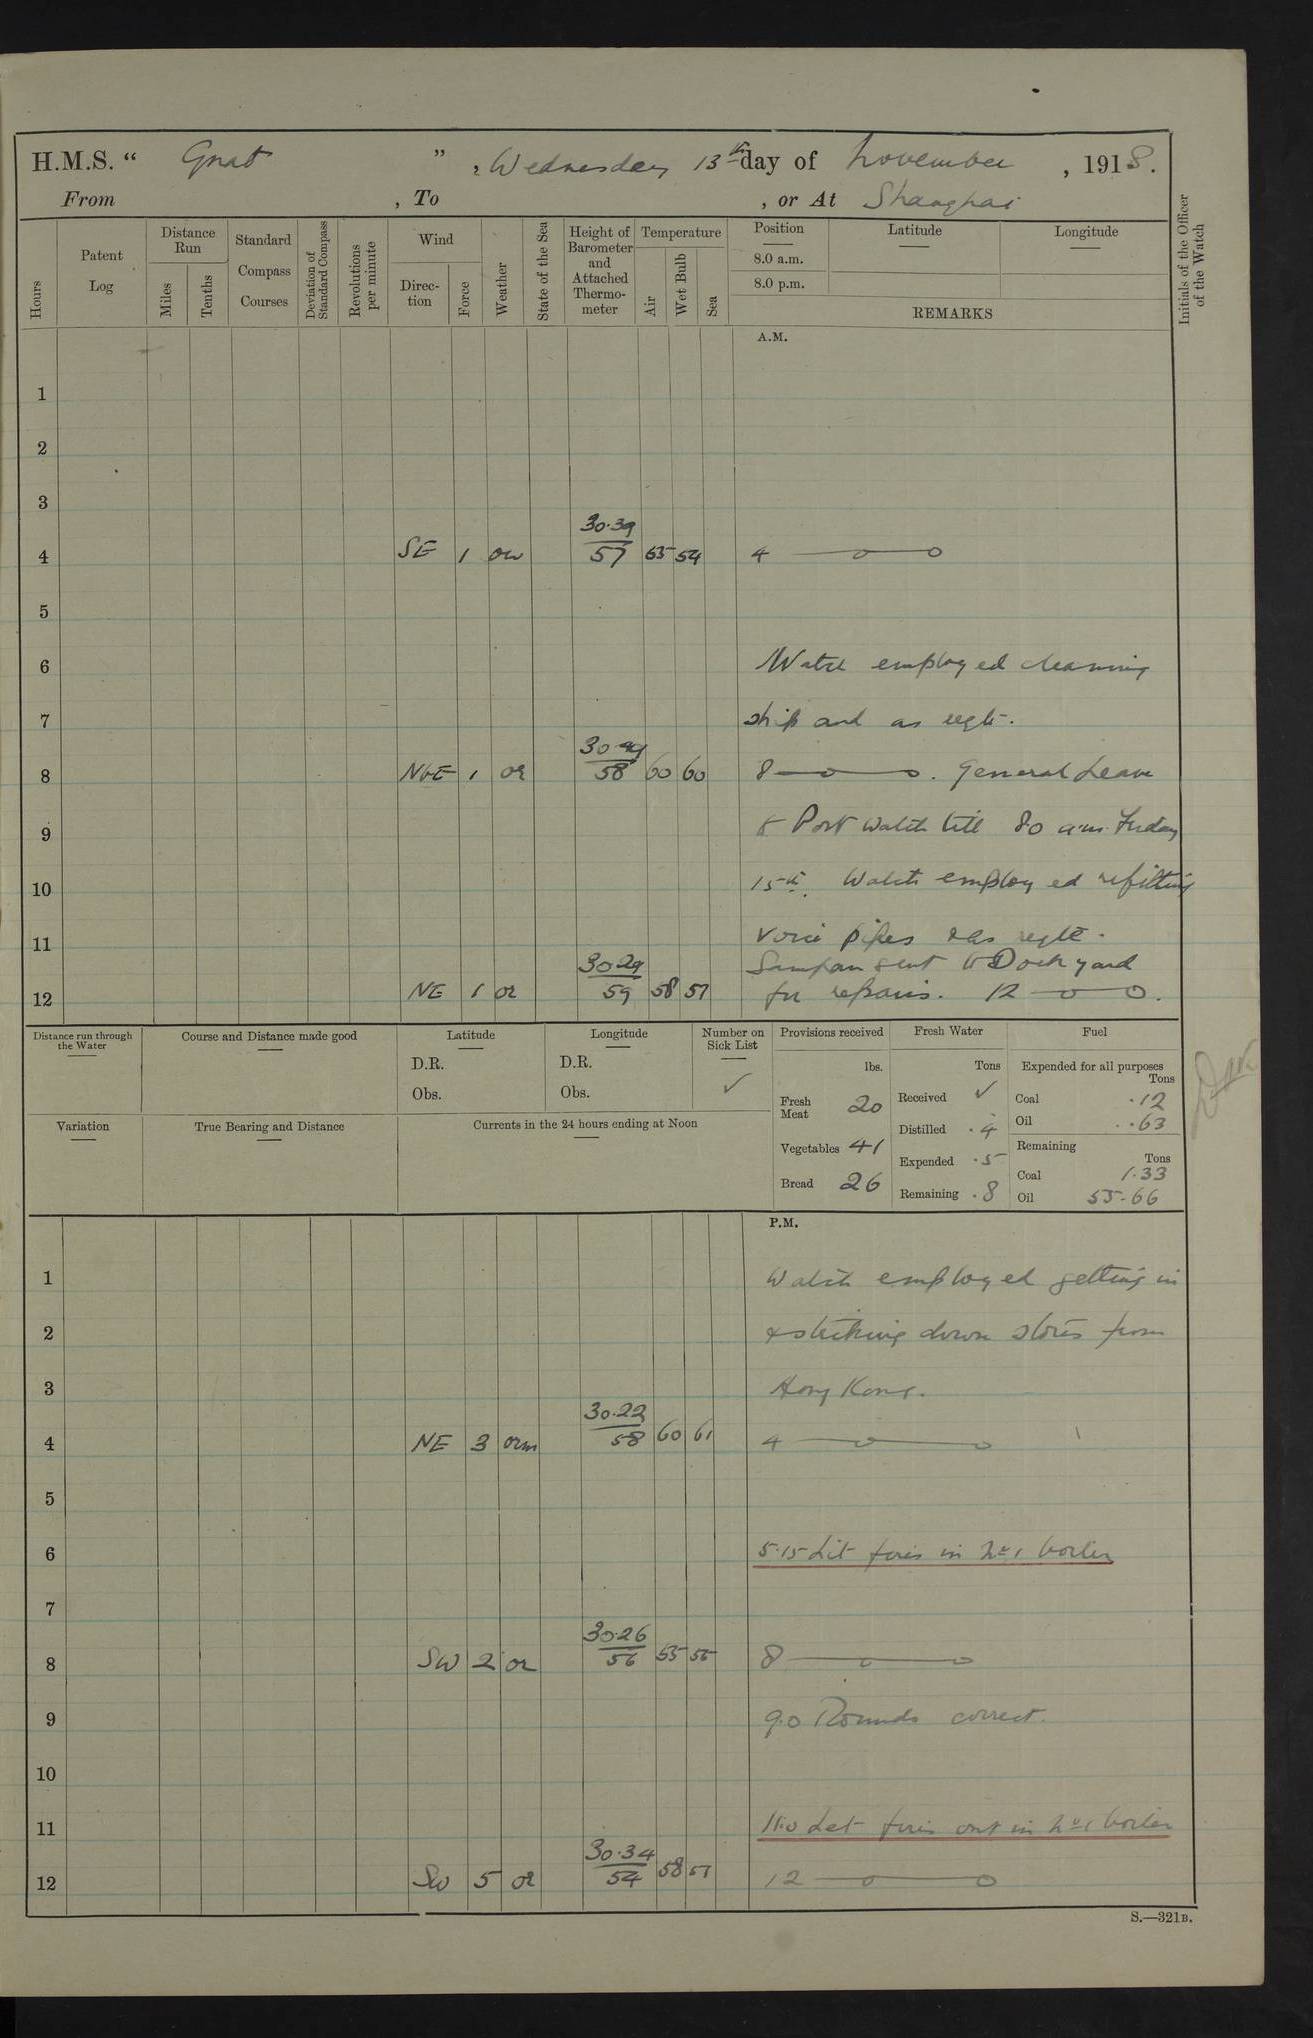 H.M.S. “ Gnat ” , Wednesday 13th day of November , 1918.
From , To , or At Shanghai
Hours
Patent Log
Distance Run
Miles
Tenths
Standard Compass Courses
Deviation of Standard Compass
Revolutions per minute
Wind
Direction
Force
Weather
State of the Sea
Height of Barometer and Attached Thermometer
Temperature
Air
Wet Bulb
Sea
Position
8.0 a.m.
8.0 p.m.
Latitude
Longitude
REMARKS
Initials of the Officer of the Watch
A.M.
1
2
3
30.39
4 SE 1 57 54 4
5
6 Watch employed cleaning
7 ship and as reqte.
8 NbE 1 or 58 60 60 8 . General Leave
9 to Port Watch till 8.0 a.m. Friday
10 15th. Watch employed refitting
11 voice pipes & as reqte.
Sampan sent to Dockyard
30.29
12 NE 1 or 59 58 57 for repairs. 12
Distance run through the Water
Course and Distance made good
Latitude
D.R.
Obs.
Longitude
D.R.
Obs.
Number on Sick List
✓
Provisions received
lbs.
Fresh Meat 20
Vegetables 41
Bread 26
Fresh Water
Tons
Received ✓
Distilled .4
Expended .5
Remaining .8
Fuel
Expended for all purposes
Tons
Coal .12
Oil .63
Remaining
Tons
Coal 1.33
Oil 55.66
Variation
True Bearing and Distance
Currents in the 24 hours ending at Noon
P.M.
1 Watch employed getting in
2 & striking down stores from
3 Hong Kong.
30.22
4 NE 3 orm 58 60 61 4
5
6 5.15 Lit fires in No 1 boiler
7
30.26
8 SW 2 or 56 55 55 8
9 9.0 Rounds correct.
10
11 11.0 Let fires out in No 1 boiler
30.34
12 SW 5 or 54 58 57 12
S.—321B.